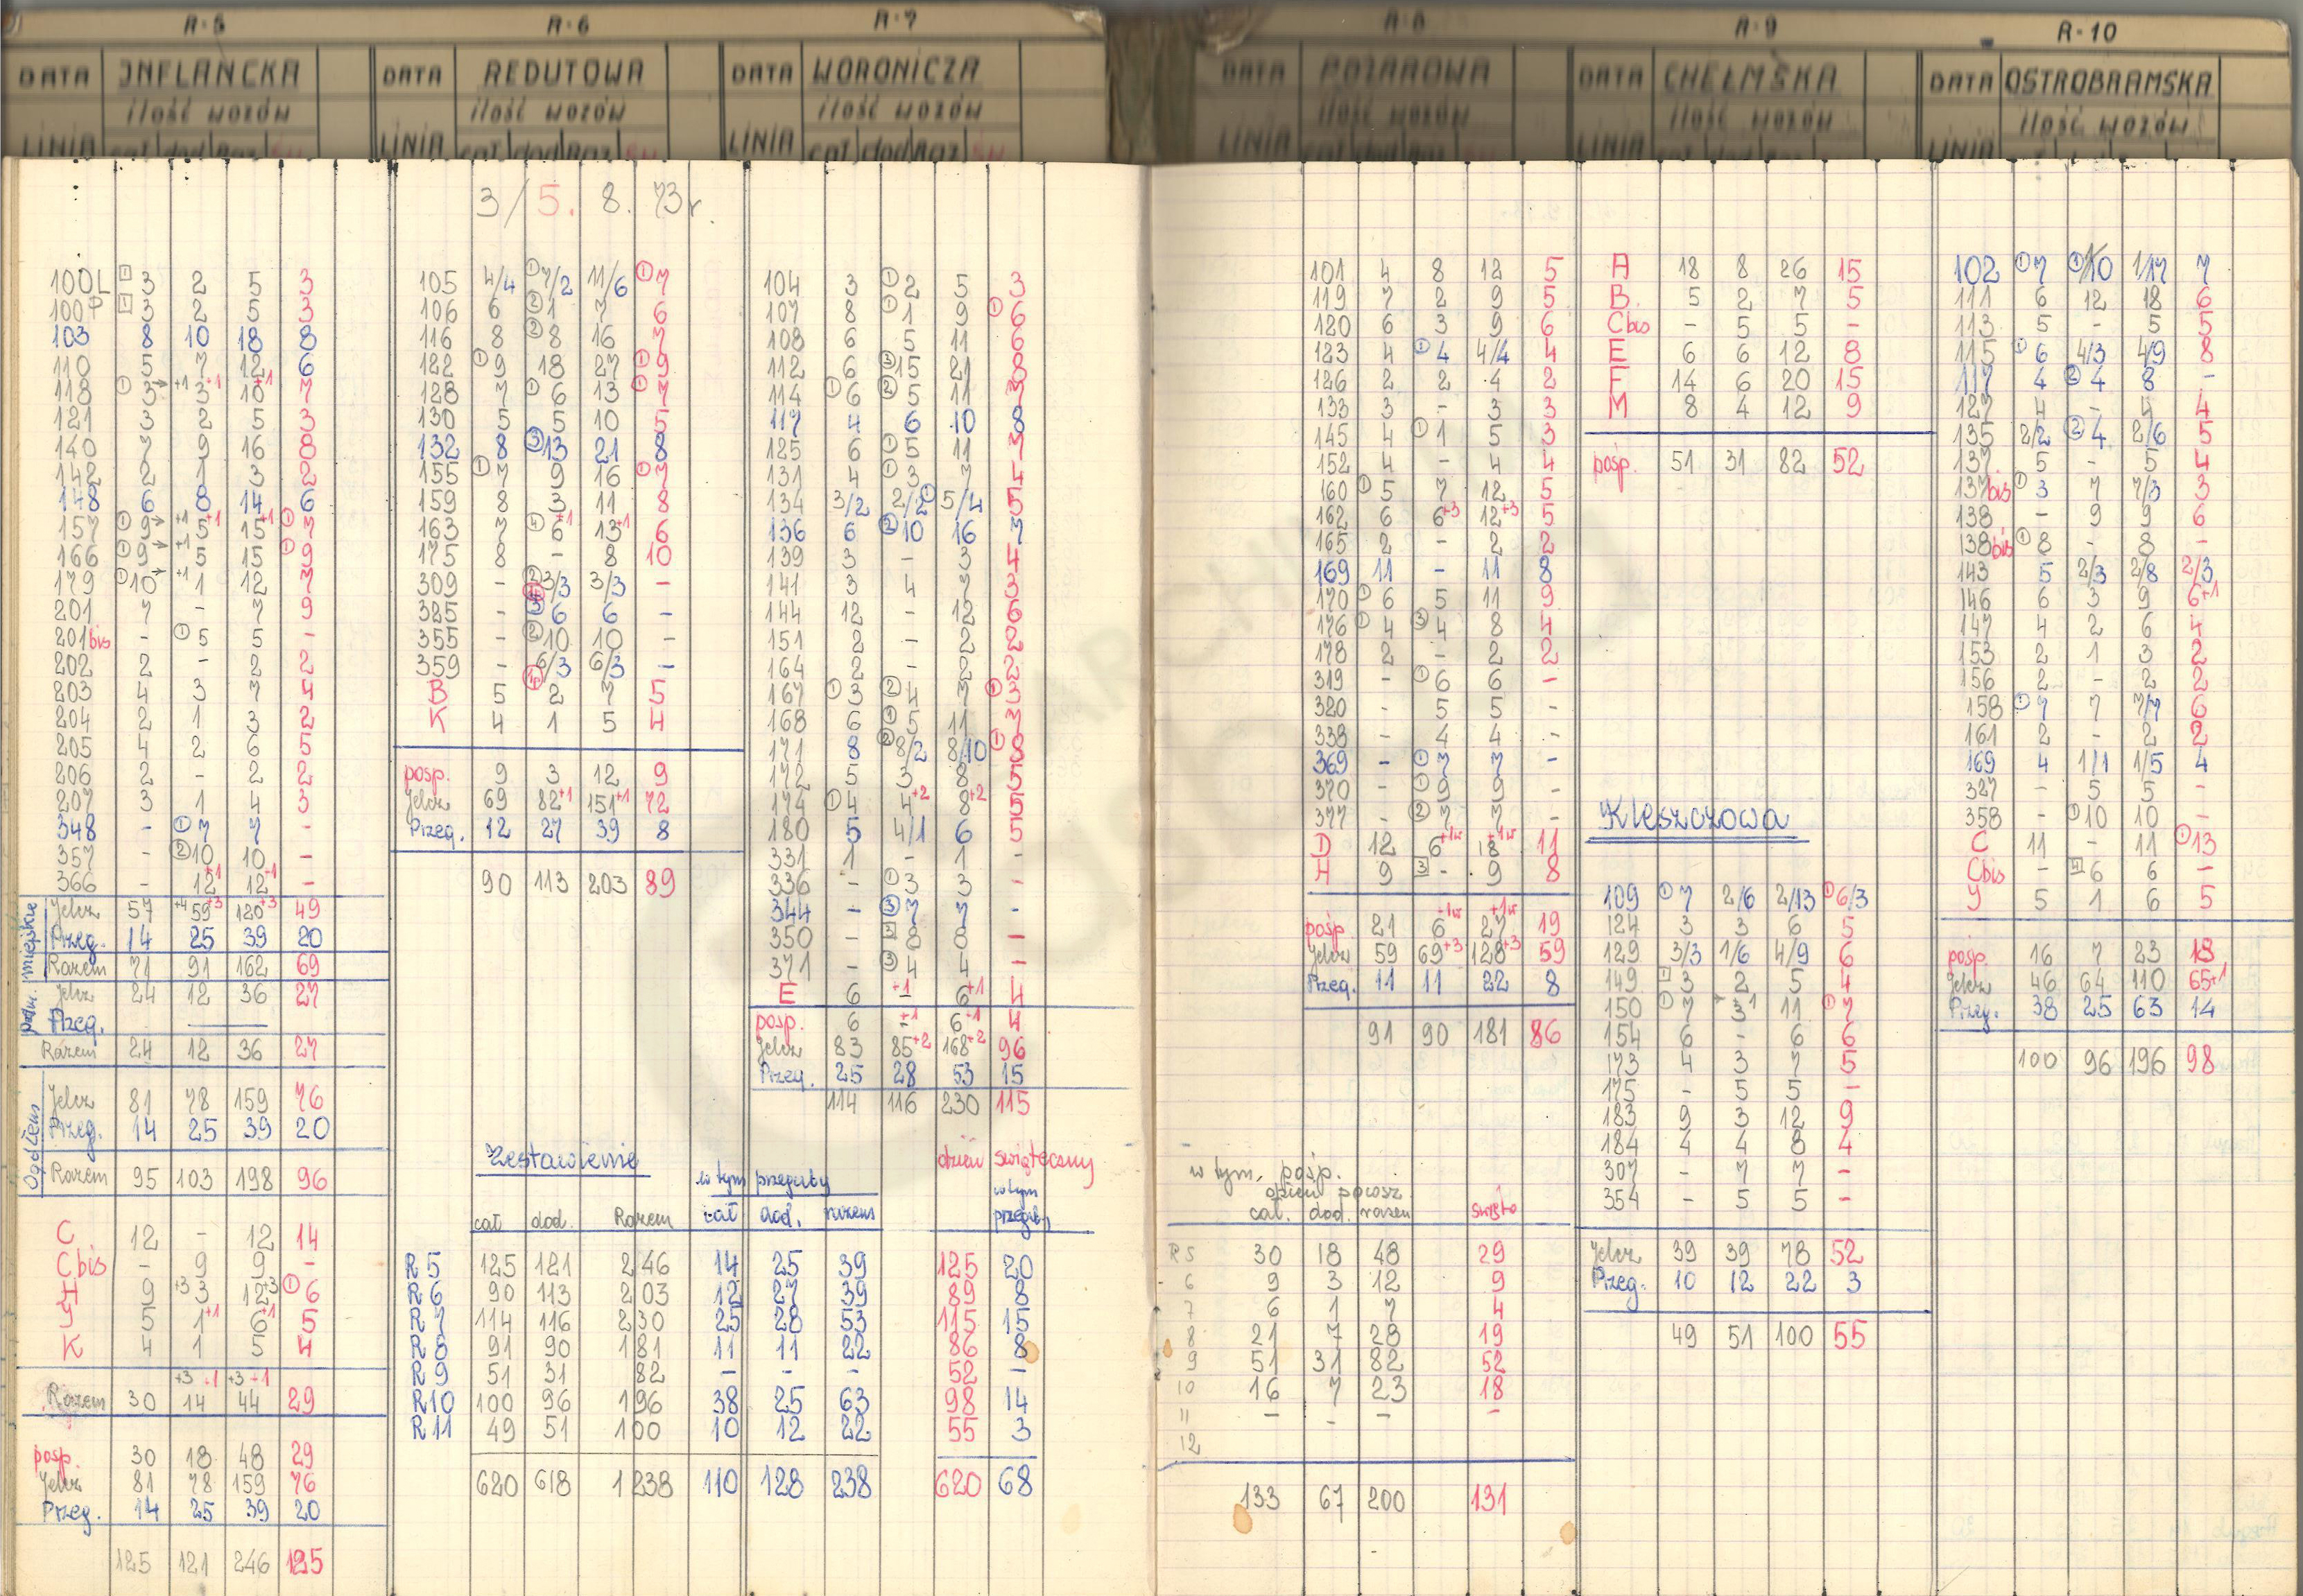 R-5
INFLANCKA
DATA
ilość wozów
LINIA
R-6
REDUTOWA
DATA
ilość wozów
LINIA
cał dod Raz Św
R-7
WORONICZA
DATA
ilość wozów
LINIA
cał dod Raz Św
R-8
DATA POŻAROWA
ilość wozów
LINIA
R-9
DATA CHEŁMSKA
ilość wozów
LINIA
R-10
DATA OSTROBRAMSKA
ilość wozów
LINIA
3/5. 8. 73r.
100L 1 3 2 5 3
100P 1 3 2 5 3
103 8 10 18 8
110 5 7 12 6
118 1 3 +1 3+1 10+1 7
121 3 2 5 3
140 7 9 16 8
142 2 1 3 2
148 6 8 14 6
157 1 9 +1 5+1 15+1 1 7
166 1 9 +1 5 15 1 9
179 1 10 +1 1 12 7
201 7 - 7 9
201bis - 1 5 5 -
202 2 - 2 2
203 4 3 7 4
204 2 1 3 2
205 4 2 6 5
206 2 - 2 2
207 3 1 4 3
348 - 1 7 7 -
357 - 2 10 10 -
366 - 12+1 12+1 -
miejskie
Jelcz 57 +4 59+3 120+3 49
Przeg. 14 25 39 20
Razem 71 91 162 69
podm.
Jelcz 24 12 36 27
Przeg.
Razem 24 12 36 27
Ogółem
Jelcz 81 78 159 76
Przeg. 14 25 39 20
Razem 95 103 198 96
C 12 - 12 14
Cbis - 9 9 -
H 9 +3 3 12+3 1 6
J 5 1+1 6+1 5
K 4 1 5 4
+3 +1 +3 +1
Razem 30 14 44 29
posp. 30 18 48 29
Jelcz 81 78 159 76
Przeg. 14 25 39 20
125 121 246 125
105 4/4 1 7/2 11/6 1 7
106 6 2 1 7 6
116 8 2 8 16 7
122 1 9 18 27 1 9
128 7 1 6 13 1 7
130 5 5 10 5
132 8 3 13 21 8
155 1 7 9 16 1 7
159 8 3 11 8
163 7 4 6+1 13+1 6
175 8 - 8 10
309 - 2 3/3 3/3 -
385 - 6 6 -
355 - 2 10 10 -
359 - 6/3 6/3 -
B 5 2 7 5
K 4 1 5 4
posp. 9 3 12 9
Jelcz 69 82+1 151+1 72
Przeg. 12 27 39 8
90 113 203 89
104 3 1 2 5 3
107 8 1 1 9 1 6
108 6 5 11 6
112 6 3 15 21 8
114 1 6 2 5 11 7
117 4 6 10 8
125 6 1 5 11 7
131 4 1 3 7 4
134 3/2 2/2 1 5/4 5
136 6 2 10 16 7
139 3 - 3 4
141 3 4 7 3
144 12 - 12 6
151 2 - 2 2
164 2 - 2 2
167 1 3 2 4 7 1 3
168 6 1 5 11 7
171 8 2 8/2 8/10 1 8
172 5 3 8 5
174 1 4 4+2 8+2 5
180 5 4/1 6 5
331 1 - 1 -
336 - 1 3 3 -
344 - 3 7 7 -
350 - 8 8 -
371 - 3 4 4 -
E 6 +1 - 6+1 4
posp. 6 +1 - 6+1 4
Jelcz 83 85+2 168+2 96
Przeg. 25 28 53 15
114 116 230 115
Zestawienie
w tym przeguby
dzień świąteczny
w tym przeguby
cał dod. Razem cał dod. razem
R5 125 121 246 14 25 39 125 20
R6 90 113 203 12 27 39 89 8
R7 114 116 230 25 28 53 115 15
R8 91 90 181 11 11 22 86 8
R9 51 31 82 - - - 52 -
R10 100 96 196 38 25 63 98 14
R11 49 51 100 10 12 22 55 3
620 618 1238 110 128 238 620 68
101 4 8 12 5
119 7 2 9 5
120 6 3 9 6
123 4 1 4 4/4 4
126 2 2 4 2
133 3 - 3 3
145 4 1 1 5 3
152 4 - 4 4
160 1 5 7 12 5
162 6 6+3 12+3 5
165 2 - 2 2
169 11 - 11 8
170 1 6 5 11 9
176 1 4 3 4 8 4
178 2 - 2 2
319 - 1 6 6 -
320 - 5 5 -
338 - 4 4 -
369 - 1 7 7 -
370 - 1 9 9 -
377 - 2 7 7 -
D 12 6+1w 18+1w 11
H 9 3 - 9 8
posp 21 6+1w 27+1w 19
Jelcz 59 69+3 128+3 59
Przeg. 11 11 22 8
91 90 181 86
w tym, posp.
dzień powsz.
cał. dod. razem święto
R5 30 18 48 29
6 9 3 12 9
7 6 1 7 4
8 21 7 28 19
9 51 31 82 52
10 16 7 23 18
11 - - - -
12
133 67 200 131
A 18 8 26 15
B. 5 2 7 5
Cbis - 5 5 -
E 6 6 12 8
F 14 6 20 15
M 8 4 12 9
posp. 51 31 82 52
Kleszczowa
109 1 7 2/6 2/13 1 6/3
124 3 3 6 5
129 3/3 1/6 4/9 6
149 1 3 2 5 4
150 1 7 3 1 11 1 7
154 6 - 6 6
173 4 3 7 5
175 - 5 5 -
183 9 3 12 9
184 4 4 8 4
307 - 7 7 -
354 - 5 5 -
Jelcz 39 39 78 52
Przeg. 10 12 22 3
49 51 100 55
102 1 7 1 10 1/17 7
111 6 12 18 6
113 5 - 5 5
115 1 6 4/3 4/9 8
117 4 2 4 8 -
127 4 - 4 4
135 2/2 2 4 2/6 5
137. 5 - 5 4
137bis 1 3 7 7/3 3
138 - 9 9 6
138bis 1 8 - 8 -
143 5 2/3 2/8 2/3
146 6 3 9 6+1
147 4 2 6 4
153 2 1 3 2
156 2 - 2 2
158 1 7 7 7/7 6
161 2 - 2 2
169 4 1/1 1/5 4
327 - 5 5 -
358 - 1 10 10 -
C 11 - 11 1 13
Cbis - 6 6 -
J 5 1 6 5
posp. 16 7 23 18
Jelcz 46 64 110 65+1
Przeg. 38 25 63 14
100 96 196 98